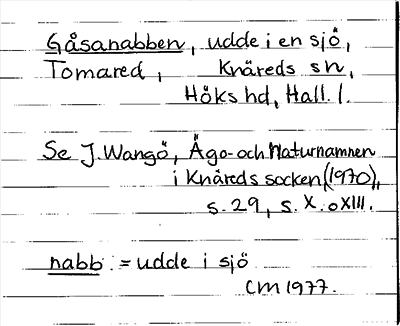 Gåsanabben, udde i en sjö,
Tomared, Knäreds sn,
Höks hd, Hall. l.
Se J. Wangö, Ägo- och Naturnamnen
i Knäreds socken (1970),
s. 29, s. X. o XIII.
nabb = udde i sjö
CM 1977.